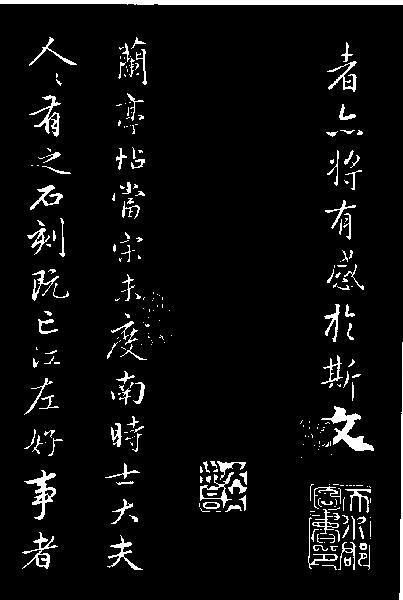 者亦將有感於斯文
蘭亭帖當宋未度南時士大夫
人〻有之石刻既亡江左好事者